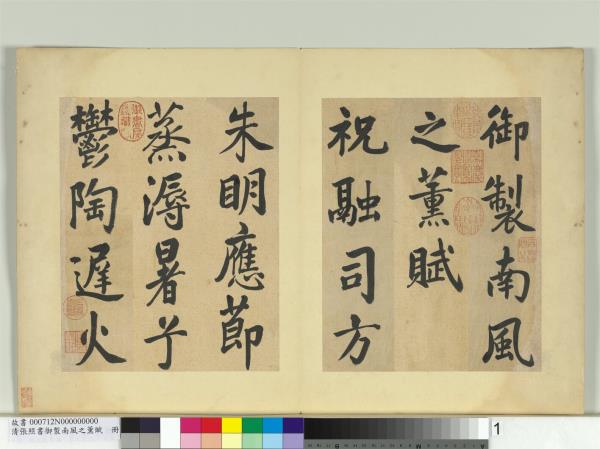 御製南風
之薰賦
祝融司方
朱明應節
蒸溽暑兮
鬱陶遲火
故書 000712N000000000
清張照書御製南風之薰賦 冊
1